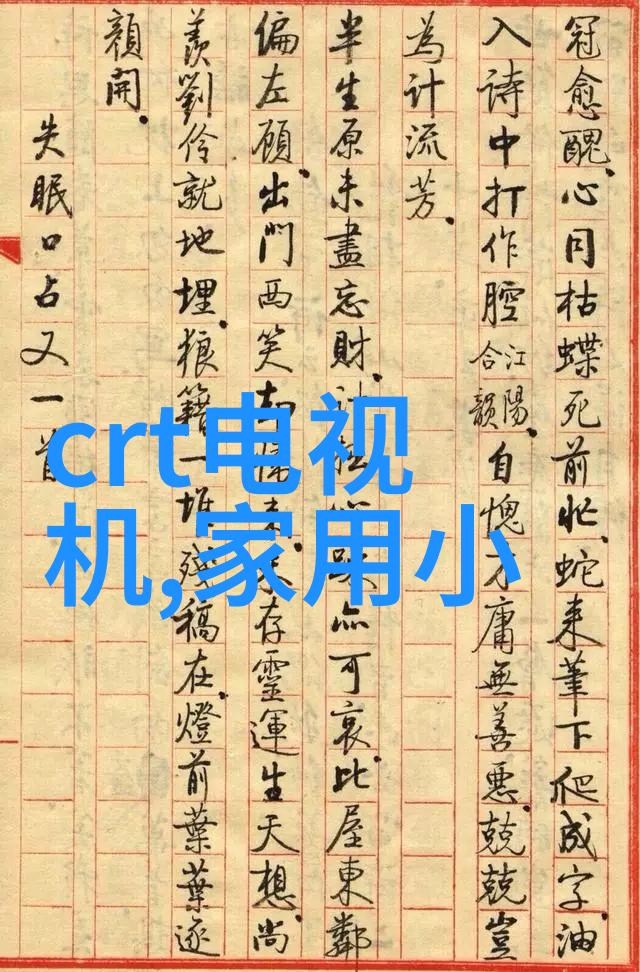 冠愈醜。心同枯蝶死前忙。蛇来筆下爬成字。油
入詩中打作腔江陽合韻。自愧才庸無善惡。兢兢豈
為計流芳。
半生原未盡忘財。計亦可哀。比屋東鄰
偏左顧。出門西笑却存靈運生天想。尚
羨劉伶就地埋。狼籍一堆殘稿在。燈前葉葉逐
顏開。
失眠口占又一首
crt电视
机,家用小